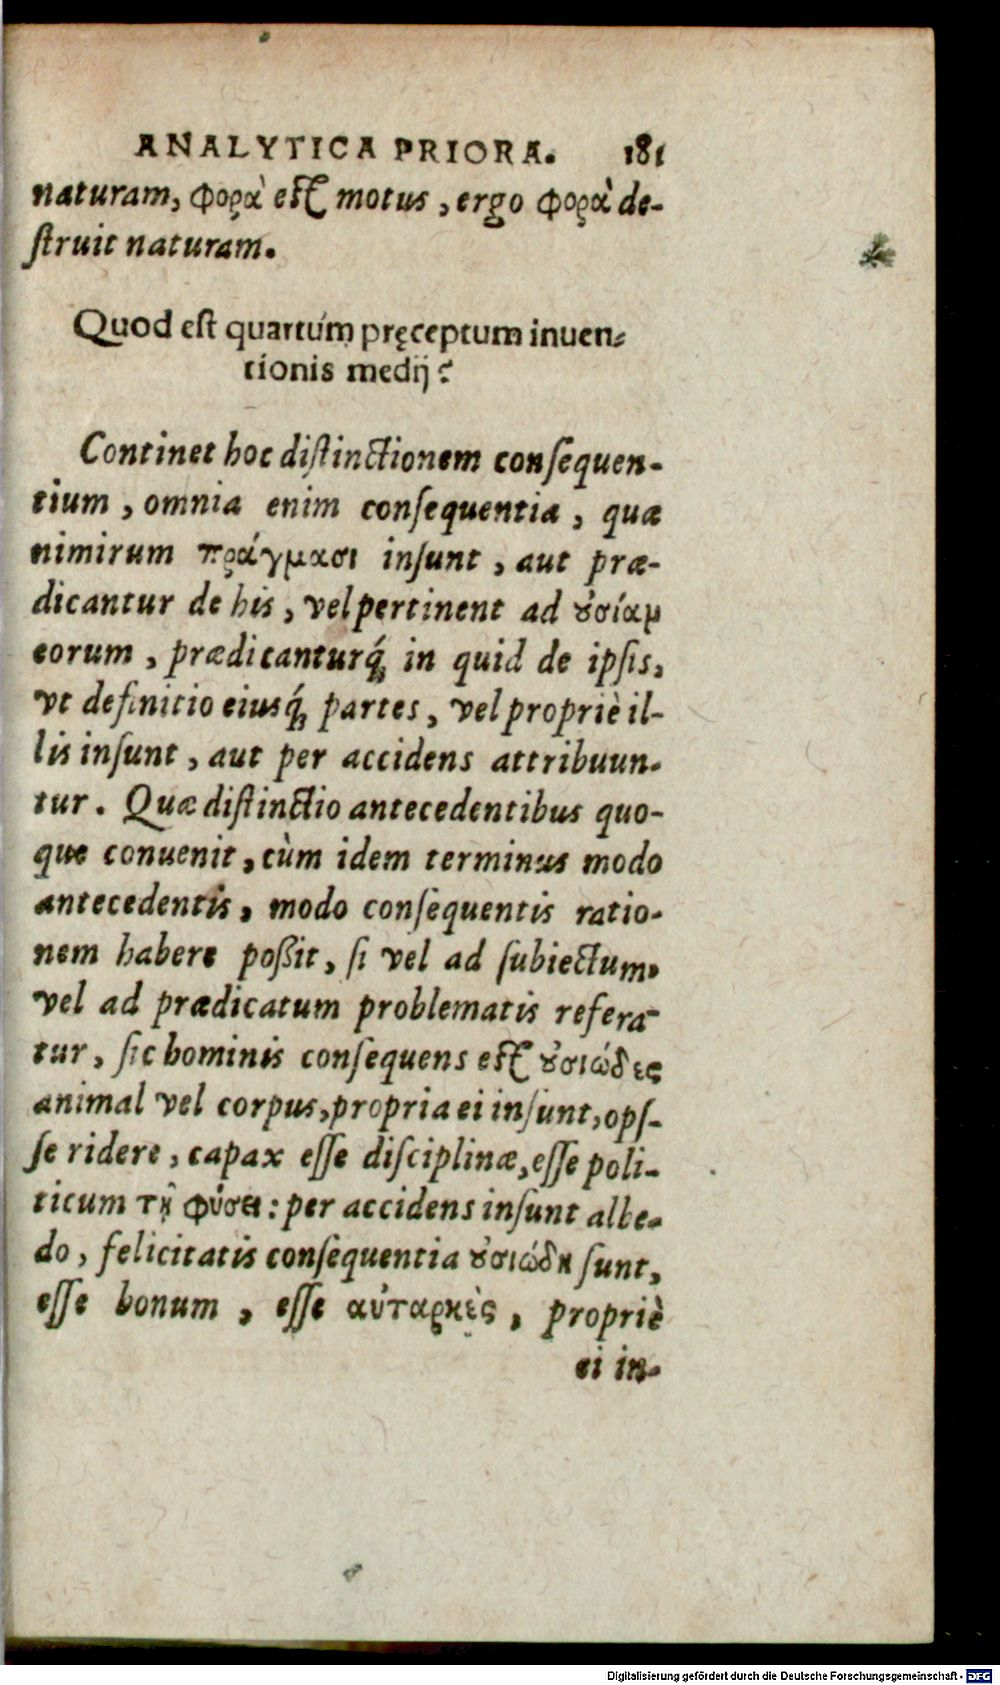 ANALYTICA PRIORA. 181
naturam, φορὰ est motus, ergo φορὰ de-
ſtruit naturam.
Quod eſt quartúm pręceptum inuen-
tionis medij?
Continet hoc diſtinctionem conſequen-
tium, omnia enim conſequentia, quæ
nimirum πράγμασι inſunt, aut præ-
dicantur de his, vel pertinent ad ȣσίαμ
eorum, prædicanturq́; in quid de ipſis,
vt definitio eiusq́; partes, vel propriè il-
lis inſunt, aut per accidens attribuun-
tur. Quæ diſtinctio antecedentibus quo-
que conuenit, cùm idem terminus modo
antecedentis, modo conſequentis ratio-
nem habere poßit, ſi vel ad ſubiectum,
vel ad prædicatum problematis refera-
tur, ſic hominis conſequens eſt ȣσιώδες
animal vel corpus, propria ei inſunt, opſ-
ſe ridere, capax eſſe diſciplinæ, eſſe poli-
ticum τῇ φύσει: per accidens inſunt albe-
do, felicitatis conſequentia ȣσιώδη ſunt,
eſſe bonum, eſſe αὐταρκὲς, propriè
ei in-
Digitalisierung gefördert durch die Deutsche Forschungsgemeinschaft - DFG